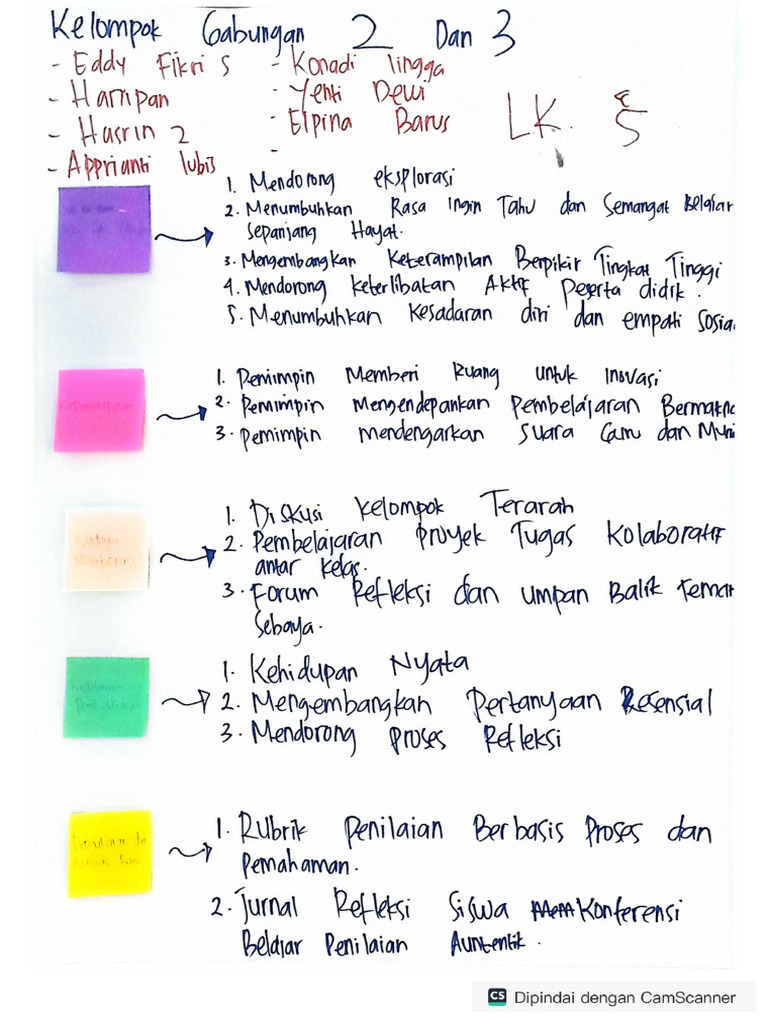 Kelompok Gabungan 2 Dan 3
- Eddy Fikri S
- Harapan
- Hasrin 2
- Apprianti lubis
- Konadi lingga
- Yenti Dewi
- Elpina Barus
-
LK. 5
1. Mendorong eksplorasi
2. Menumbuhkan Rasa Ingin Tahu dan Semangat Belajar
Sepanjang Hayat.
3. Mengembangkan Keterampilan Berpikir Tingkat Tinggi
4. Mendorong keterlibatan Aktif Peserta didik.
5. Menumbuhkan Kesadaran diri dan empati Sosia
Kepemimpinan
1. Pemimpin Memberi Ruang untuk Inovasi
2. Pemimpin Mengendepankan Pembelajaran Bermakna
3. Pemimpin mendengarkan Suara Guru dan Muri
Budaya
1. Diskusi Kelompok Terarah
2. Pembelajaran Proyek Tugas Kolaboratif
antar kelas.
3. Forum Refleksi dan umpan Balik Teman
Sebaya.
Kedalaman
Pembelajaran
1. Kehidupan Nyata
2. Mengembangkan Pertanyaan Resensial
3. Mendorong Proses Refleksi
1. Rubrik Penilaian Berbasis Proses dan
Pemahaman.
2. Jurnal Refleksi Siswa Konferensi
Belajar Penilaian Auntentik.
CS Dipindai dengan CamScanner